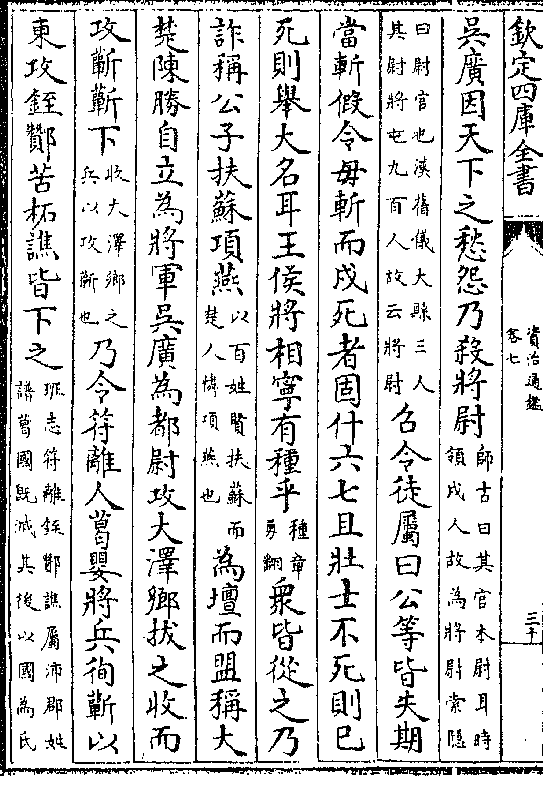 欽定四庫全書
資治通鑑
卷七
三十
吳廣因天下之愁怨乃殺將尉
師古曰其官本尉耳時
領戍人故為將尉索隱
曰尉官也漢舊儀大縣三人
其尉將屯九百人故云將尉
召令徒屬曰公等皆失期
當斬假令毋斬而戍死者固什六七且壯士不死則已
死則舉大名耳王侯將相寧有種乎
種章
勇翻
眾皆從之乃
詐稱公子扶蘇項燕
以百姓賢扶蘇而
楚人憐項燕也
為壇而盟稱大
楚陳勝自立為將軍吳廣為都尉攻大澤鄉拔之收而
攻蘄蘄下
收大澤鄉之
兵以攻蘄也
乃令符離人葛嬰將兵徇蘄以
東攻銍酇苦柘譙皆下之
班志符離銍酇譙屬沛郡姓
譜葛國既滅其後以國為氏